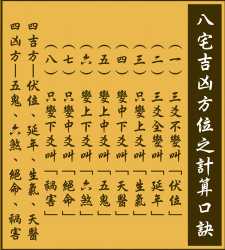 八宅吉凶方位之計算口訣
(一) 三爻不變叫「伏位」
(二) 三爻全變叫「延年」
(三) 只變上爻叫「生氣」
(四) 變中下爻叫「天醫」
(五) 變上中爻叫「五鬼」
(六) 變上下爻叫「六煞」
(七) 只變中爻叫「絕命」
(八) 只變下爻叫「禍害」
四吉方—伏位、延年、生氣、天醫
四凶方—五鬼、六煞、絕命、禍害